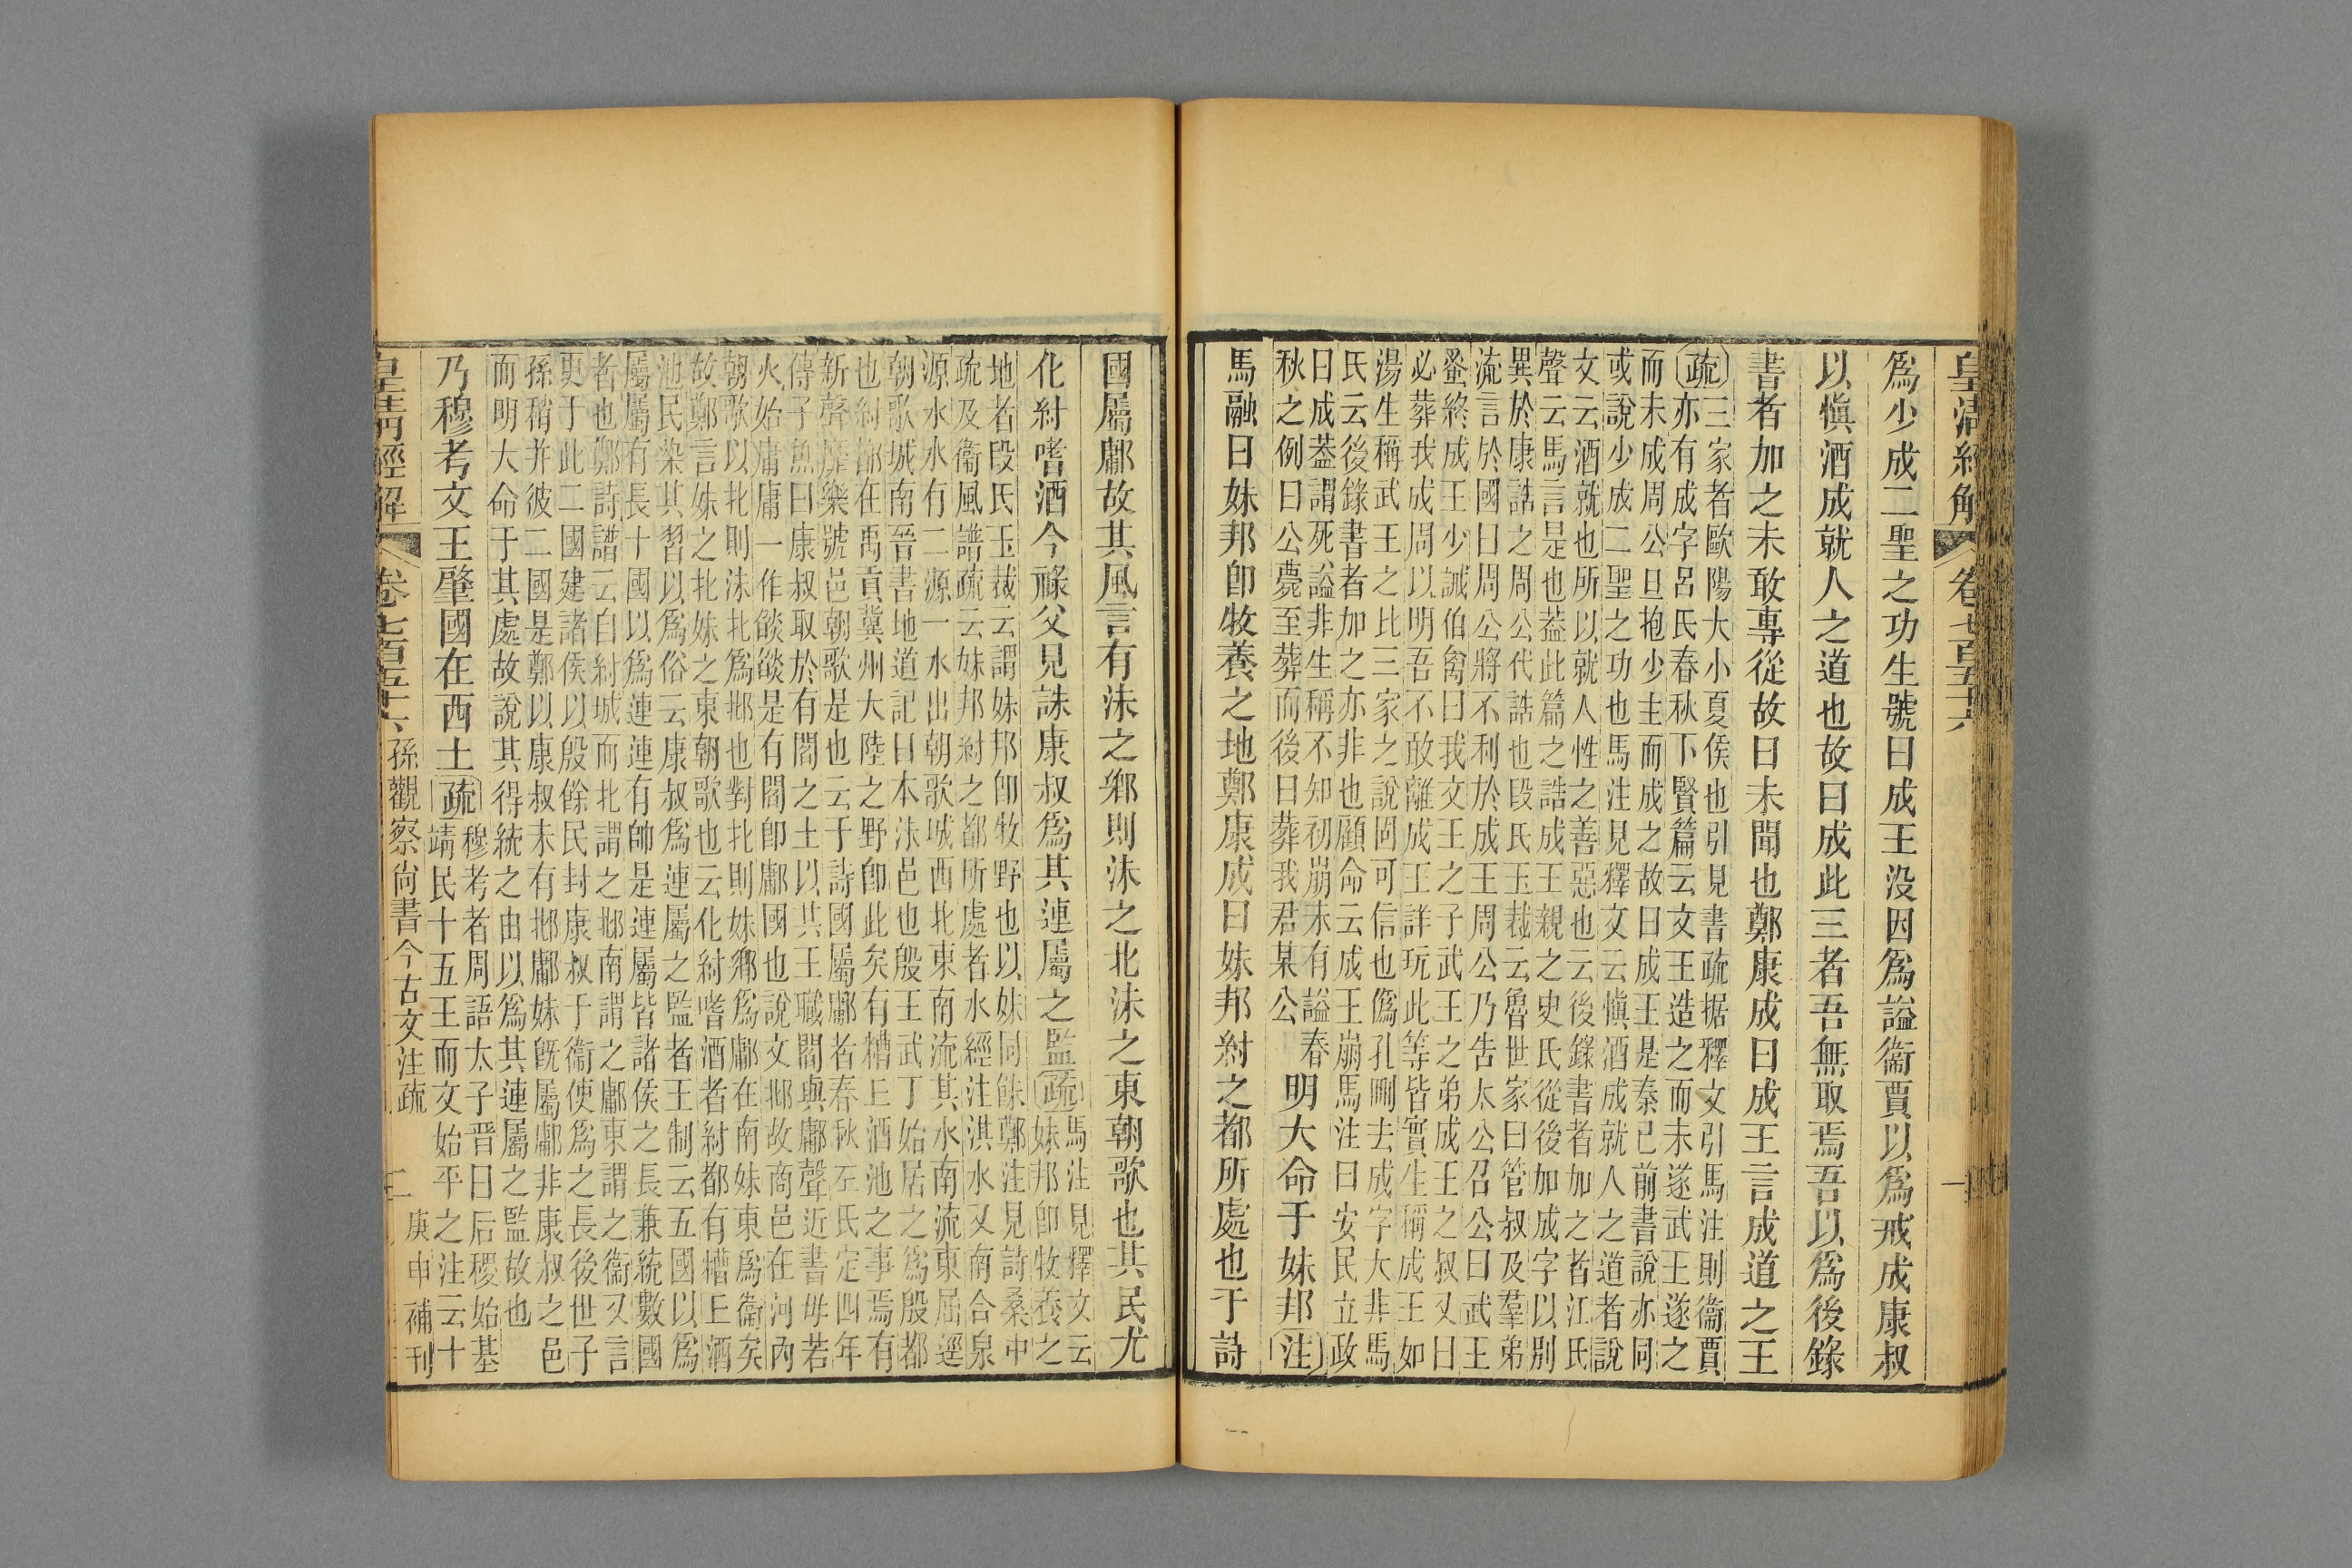 皇清經解 卷七百五十六 一
爲少成二聖之功生號曰成王没因爲謚衞賈以爲戒成康叔
以愼酒成就人之道也故曰成此三者吾無取焉吾以爲後錄
書者加之未敢專從故曰未聞也鄭康成曰成王言成道之王
疏三家者歐陽大小夏侯也引見書疏据釋文引馬注則衞賈
亦有成字呂氏春秋下賢篇云文王造之而未遂武王遂之
而未成周公旦抱少主而成之故曰成王是秦已前書說亦同
或說少成二聖之功也馬注見釋文云愼酒成就人之道者說
文云酒就也所以就人性之善惡也云後錄書者加之者江氏
聲云馬言是也葢此篇之誥成王親之史氏從後加成字以別
異於康誥之周公代誥也段氏玉裁云魯世家曰管叔及羣弟
流言於國曰周公將不利於成王周公乃吿太公召公曰武王
蚤終成王少誡伯禽曰我文王之子武王之弟成王之叔又曰
必葬我成周以明吾不敢離成王詳玩此等皆實生稱成王如
湯生稱武王之比三家之說固可信也僞孔刪去成字大非馬
氏云後錄書者加之亦非也顧命云成王崩馬注曰安民立政
曰成葢謂死謚非生稱不知初崩未有謚春
秋之例曰公薨至葬而後曰葬我君某公
明大命于妹邦注
馬融曰妹邦卽牧養之地鄭康成曰妹邦紂之都所處也于詩
國屬鄘故其風言有沬之鄉則沬之北沬之東朝歌也其民尤
化紂嗜酒今祿父見誅康叔爲其連屬之監疏
馬注見釋文云
妹邦卽牧養之
地者段氏玉裁云謂妹邦卽牧野也以妹同餗鄭注見詩桑中
疏及衞風譜疏云妹邦紂之都所處者水經注淇水又南合泉
源水水有二源一水出朝歌城西北東南流其水南流東屈逕
朝歌城南晉書地道記曰本沬邑也殷王武丁始居之爲殷都
也紂都在禹貢冀州大陸之野卽此矣有糟丘酒池之事焉有
新聲靡樂號邑朝歌是也云于詩國屬鄘者春秋左氏定四年
傳子魚曰康叔取於有閻之土以共王職閻與鄘聲近書毋若
火始庸庸一作燄燄是有閻卽鄘國也說文邶故商邑在河內
朝歌以北則沬北爲邶也對北則妹鄉爲鄘在南妹東爲衞矣
故鄭言妹之北妹之東朝歌也云化紂嗜酒者紂都有糟丘酒
池民染其習以爲俗云康叔爲連屬之監者王制云五國以爲
屬屬有長十國以爲連連有帥是連屬皆諸侯之長兼統數國
者也鄭詩譜云自紂城而北謂之邶南謂之鄘東謂之衞又言
更于此二國建諸侯以殷餘民封康叔于衞使爲之長後世子
孫稍并彼二國是鄭以康叔未有邶鄘妹旣屬鄘非康叔之邑
而明大命于其處故說其得統之由以爲其連屬之監故也
乃穆考文王肇國在西土疏
穆考者周語太子晉曰后稷始基
靖民十五王而文始平之注云十
皇清經解 卷七百五十六 孫觀察尙書今古文注疏 二 庚申補刊